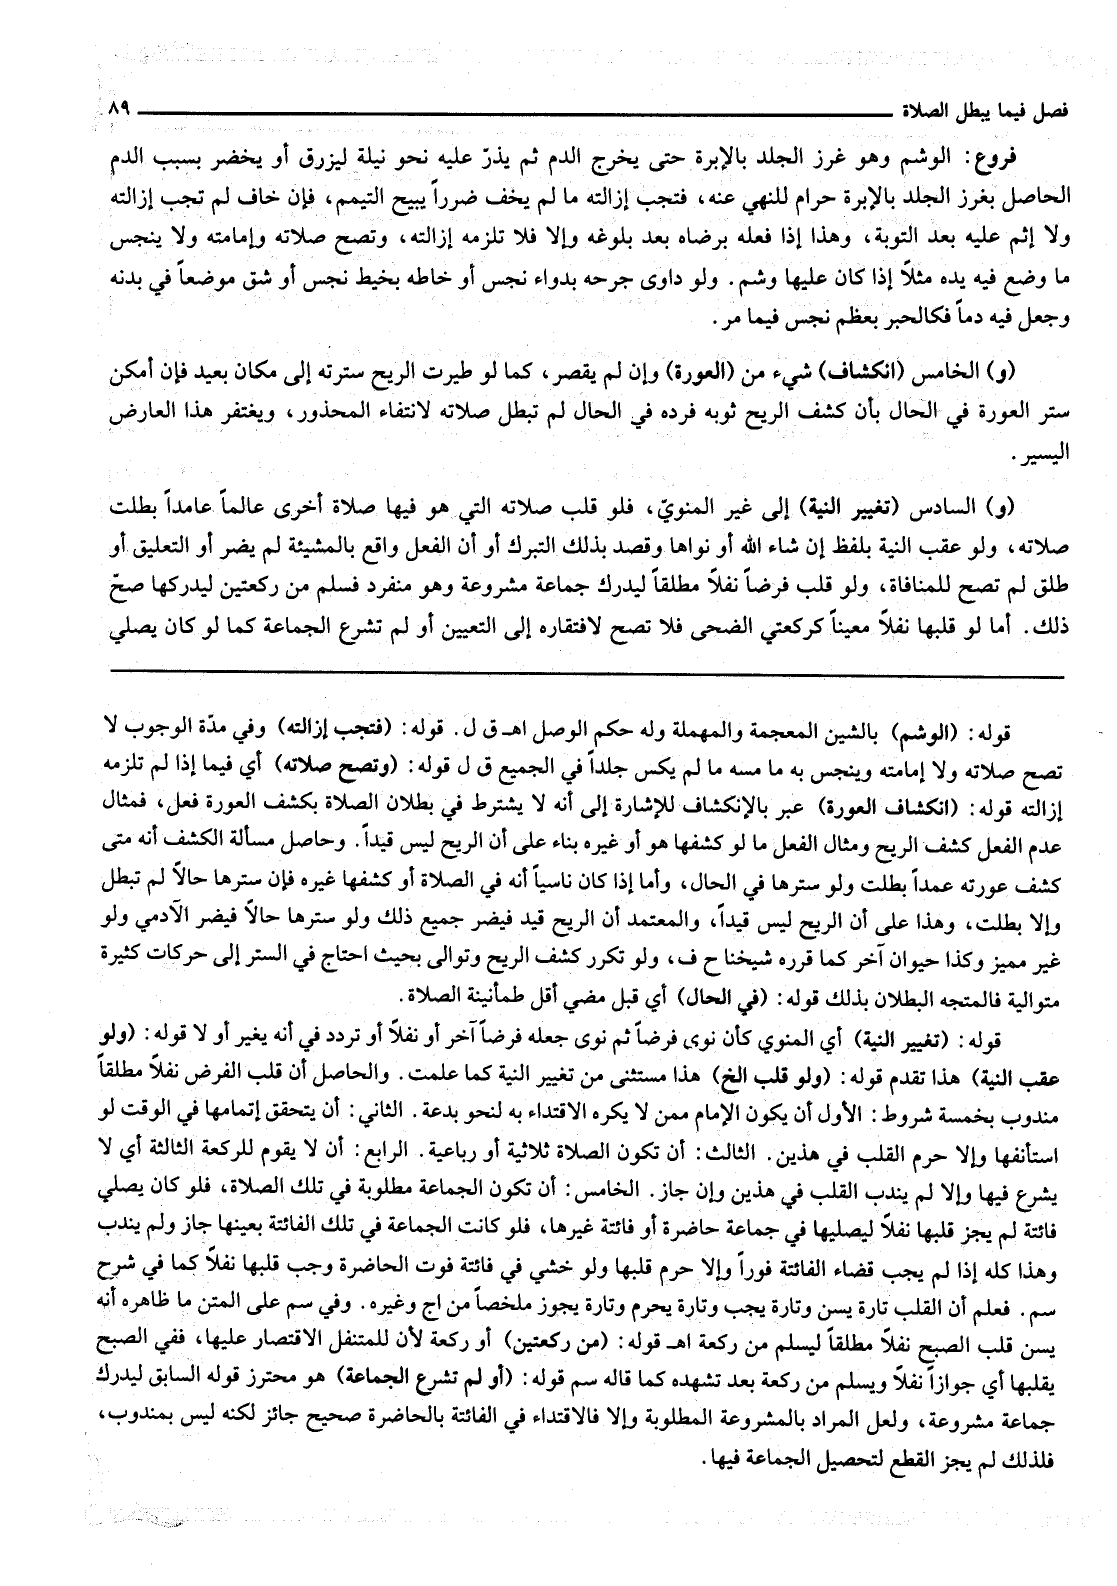 فصل فيما يبطل الصلاة ٨٩
فروع: الوشم وهو غرز الجلد بالإبرة حتى يخرج الدم ثم يذرّ عليه نحو نيلة ليزرق أو يخضر بسبب الدم
الحاصل بغرز الجلد بالإبرة حرام للنهي عنه، فتجب إزالته ما لم يخف ضرراً يبيح التيمم، فإن خاف لم تجب إزالته
ولا إثم عليه بعد التوبة، وهذا إذا فعله برضاه بعد بلوغه وإلا فلا تلزمه إزالته، وتصح صلاته وإمامته ولا ينجس
ما وضع فيه يده مثلاً إذا كان عليها وشم. ولو داوى جرحه بدواء نجس أو خاطه بخيط نجس أو شق موضعاً في بدنه
وجعل فيه دماً فكالجبر بعظم نجس فيما مر.
(و) الخامس (انكشاف) شيء من (العورة) وإن لم يقصر، كما لو طيرت الريح سترته إلى مكان بعيد فإن أمكن
ستر العورة في الحال بأن كشف الريح ثوبه فرده في الحال لم تبطل صلاته لانتفاء المحذور، ويغتفر هذا العارض
اليسير.
(و) السادس (تغيير النية) إلى غير المنويّ، فلو قلب صلاته التي هو فيها صلاة أخرى عالماً عامداً بطلت
صلاته، ولو عقب النية بلفظ إن شاء الله أو نواها وقصد بذلك التبرك أو أن الفعل واقع بالمشيئة لم يضر أو التعليق أو
طلق لم تصح للمنافاة، ولو قلب فرضاً نفلاً مطلقاً ليدرك جماعة مشروعة وهو منفرد فسلم من ركعتين ليدركها صحّ
ذلك. أما لو قلبها نفلاً معيناً كركعتي الضحى فلا تصح لافتقاره إلى التعيين أو لم تشرع الجماعة كما لو كان يصلي
قوله: (الوشم) بالشين المعجمة والمهملة وله حكم الوصل اهـ ق ل. قوله: (فتجب إزالته) وفي مدّة الوجوب لا
تصح صلاته ولا إمامته وينجس به ما مسه ما لم يكس جلداً في الجميع ق ل قوله: (وتصح صلاته) أي فيما إذا لم تلزمه
إزالته قوله: (انكشاف العورة) عبر بالإنكشاف للإشارة إلى أنه لا يشترط في بطلان الصلاة بكشف العورة فعل، فمثال
عدم الفعل كشف الريح ومثال الفعل ما لو كشفها هو أو غيره بناء على أن الريح ليس قيداً. وحاصل مسألة الكشف أنه متى
كشف عورته عمداً بطلت ولو سترها في الحال، وأما إذا كان ناسياً أنه في الصلاة أو كشفها غيره فإن سترها حالاً لم تبطل
وإلا بطلت، وهذا على أن الريح ليس قيداً، والمعتمد أن الريح قيد فيضر جميع ذلك ولو سترها حالاً فيضر الآدمي ولو
غير مميز وكذا حيوان آخر كما قرره شيخنا ح ف، ولو تكرر كشف الريح وتوالى بحيث احتاج في الستر إلى حركات كثيرة
متوالية فالمتجه البطلان بذلك قوله: (في الحال) أي قبل مضي أقل طمأنينة الصلاة.
قوله: (تغيير النية) أي المنوي كأن نوى فرضاً ثم نوى جعله فرضاً آخر أو نفلاً أو تردد في أنه يغير أو لا قوله: (ولو
عقب النية) هذا تقدم قوله: (ولو قلب الخ) هذا مستثنى من تغيير النية كما علمت. والحاصل أن قلب الفرض نفلاً مطلقاً
مندوب بخمسة شروط: الأول أن يكون الإمام ممن لا يكره الاقتداء به لنحو بدعة. الثاني: أن يتحقق إتمامها في الوقت لو
استأنفها وإلا حرم القلب في هذين. الثالث: أن تكون الصلاة ثلاثية أو رباعية. الرابع: أن لا يقوم للركعة الثالثة أي لا
يشرع فيها وإلا لم يندب القلب في هذين وإن جاز. الخامس: أن تكون الجماعة مطلوبة في تلك الصلاة، فلو كان يصلي
فائتة لم يجز قلبها نفلاً ليصليها في جماعة حاضرة أو فائتة غيرها، فلو كانت الجماعة في تلك الفائتة بعينها جاز ولم يندب
وهذا كله إذا لم يجب قضاء الفائتة فوراً وإلا حرم قلبها ولو خشي في فائتة فوت الحاضرة وجب قلبها نفلاً كما في شرح
سم. فعلم أن القلب تارة يسن وتارة يجب وتارة يحرم وتارة يجوز ملخصاً من اج وغيره. وفي سم على المتن ما ظاهره أنه
يسن قلب الصبح نفلاً مطلقاً ليسلم من ركعة اهـ قوله: (من ركعتين) أو ركعة لأن للمتنفل الاقتصار عليها، ففي الصبح
يقلبها أي جوازاً نفلاً ويسلم من ركعة بعد تشهده كما قاله سم قوله: (أو لم تشرع الجماعة) هو محترز قوله السابق ليدرك
جماعة مشروعة، ولعل المراد بالمشروعة المطلوبة وإلا فالاقتداء في الفائتة بالحاضرة صحيح جائز لكنه ليس بمندوب،
فلذلك لم يجز القطع لتحصيل الجماعة فيها.